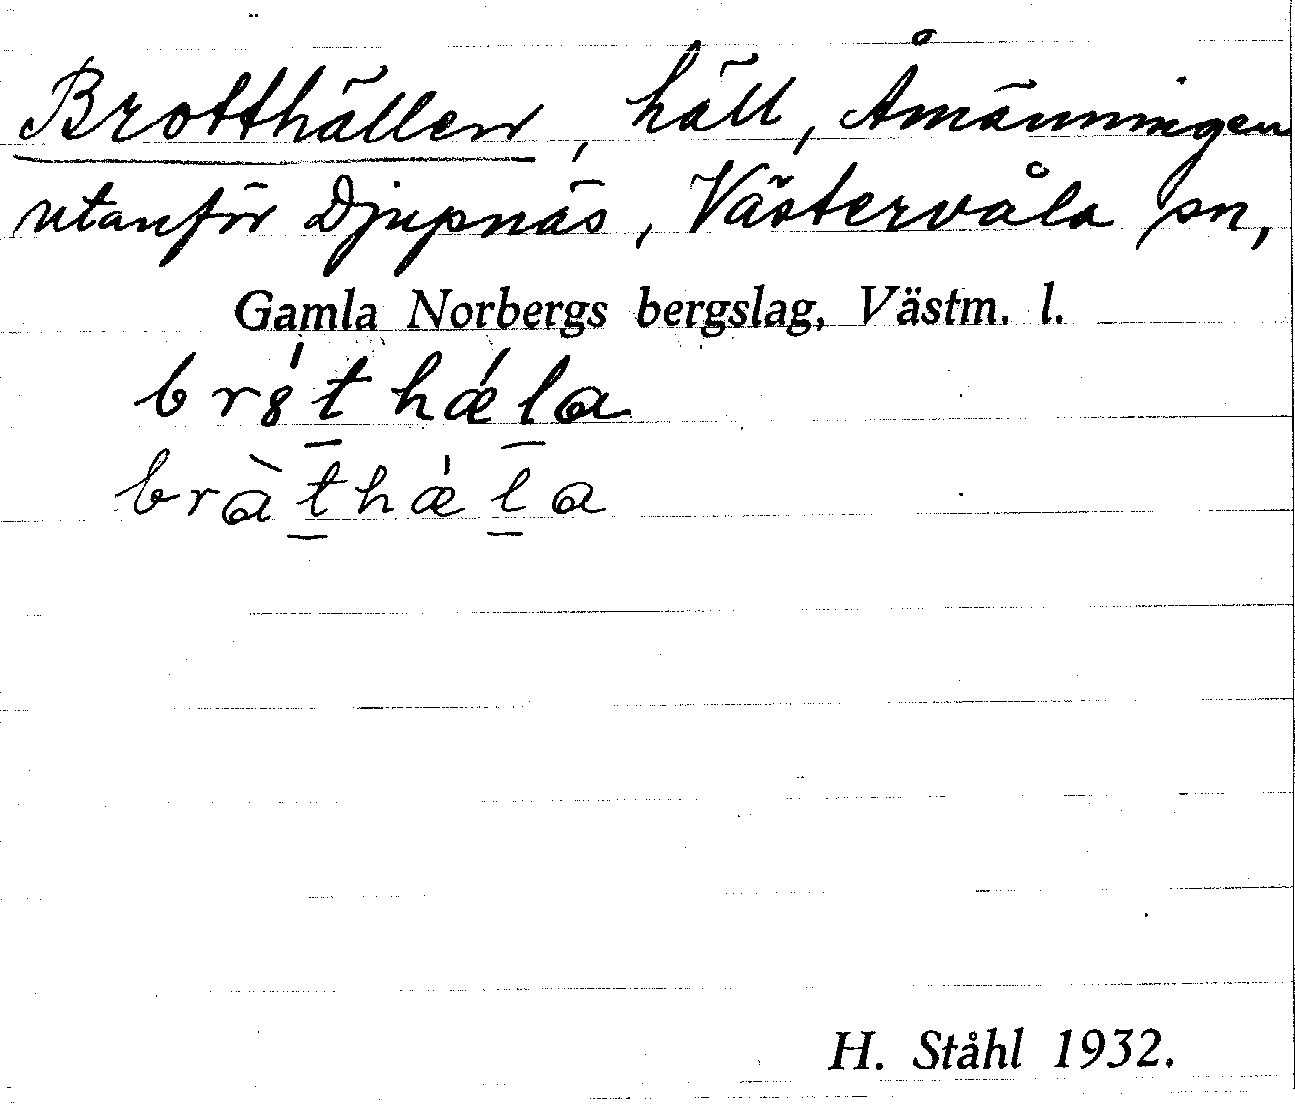 Brotthällen, häll, Åmänningen
utanför Djupnäs, Västervåla sn,
Gamla Norbergs bergslag, Västm. l.
br8́t̲ hǽl̲a
bràt̲hæ̍l̲a
H. Ståhl 1932.